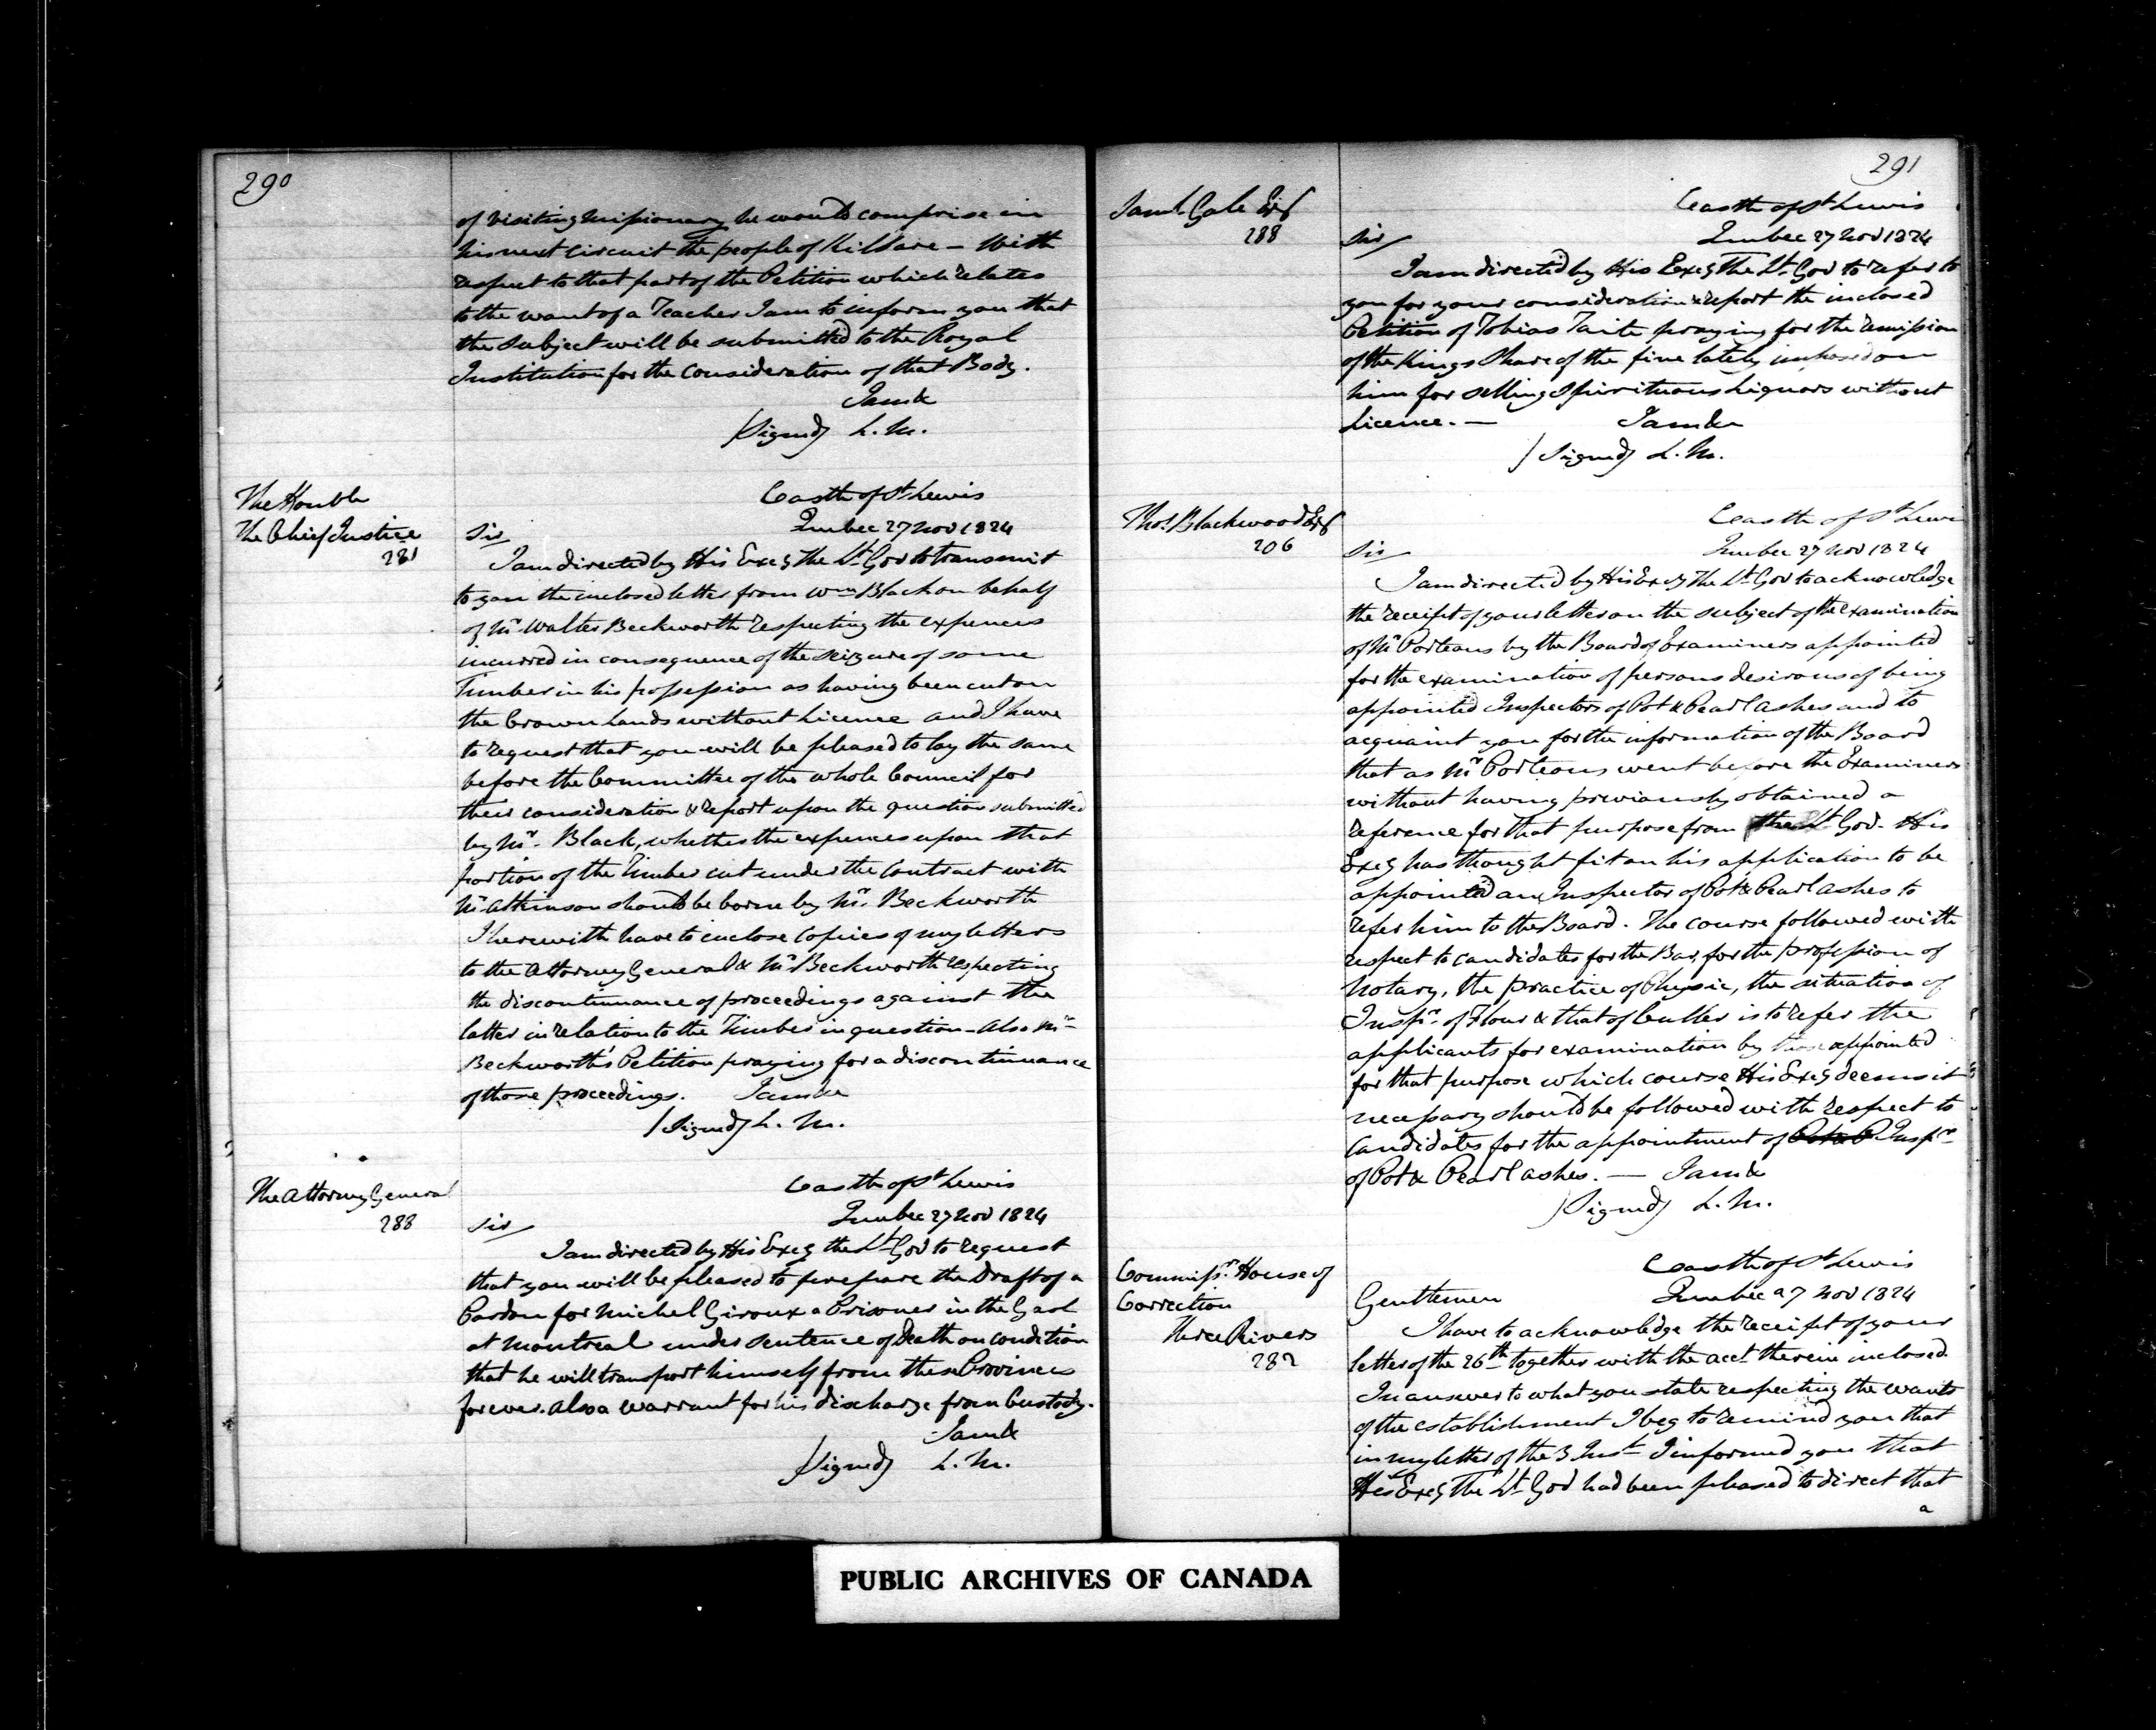 290
of visiting missionary he would comprise in
his next circuit the people of Kildare – With
respect to that part of the Petition which relates
to the want of a Teacher I am to inform you that
the subject will be submitted to the Royal
Institution for the consideration of that Body.
I am &
(Signed) L. M.
The Honble
The Chief Justice
281
Castle of St Lewis
Quebec 27 Nov 1824
Sir
I am directed by His Excy The Lt Gov to transmit
to you the inclosed letter from Wm Black on behalf
of Mr Walter Beckworth respecting the expences
incurred in consequence of the seizure of some
Timber in his possession as having been cut on
the Crown Lands without Licence and I have
to request that you will be pleased to lay the same
before the Committee of the whole Council for
their consideration & report upon the question submitted
by Mr. Black, whether the expences upon that
portion of the Timber cut under the Contract with
Mr Atkinson should be borne by Mr. Beckworth
I herewith have to enclose Copies of my letters
to the Attorney General & Mr Beckworth respecting
the discontinuance of proceedings against the
latter in relation to the Timber in question – Also Mr
Beckworth's Petition praying for a discontinuance
of those proceedings. I am &c
(Signed) L. M.
The Attorney General
288
Castle of St Lewis
Quebec 27 Nov 1824
Sir
I am directed by His Excy the Lt Gov to request
that you will be pleased to prepare the Draft of a
Pardon for Michel Giroux a Prisoner in the Gaol
at Montreal under sentence of Death on condition
that he will transport himself from these Provinces
forever. Also a Warrant for his discharge from Custody.
I am &
(Signed) L. M.
291
Saml. Gale Esqr
288
Castle of St Lewis
Quebec 27 Nov 1824
Sir
I am directed by His Excy The Lt Gov to refer to
you for your consideration & report the inclosed
Petition of Tobias Tait praying for the remission
of the Kings Share of the fine lately imposed on
him for selling Spirituous Liquors without
Licence. – I am &c
(Signed) L. M.
Thos. Blackwood Esqr
206
Castle of St Lewi
Quebec 27 Nov 1824
Sir
I am directed by His Excy The Lt Gov to acknowledge
the receipt of your letter on the subject of the examination
of Mr Porteous by the Board of Examiners appointed
for the examination of persons desirous of being
appointed Inspectors of Pot & Pearl ashes and to
acquaint you for the information of the Board
that as Mr Porteous went before the Examiners
without having previously obtained a
reference for that purpose from the Lt Gov. His
Excy has thought fit on his application to be
appointed an Inspector of Pot & Pearl ashes to
refer him to the Board. The course followed with
respect to candidates for the Bar, for the profession of
Notary, the practice of Physic, the situation of
Inspr. of Flour & that of Culler is to refer the
applicants for examination by those appointed
for that purpose which course His Excy deems it
necessary should be followed with respect to
Candidates for the appointment of Pot & P Inspr
of Pot & Pearl ashes. — I am &
(Signed) L. M.
Commissrs. House of
Correction
Three Rivers
282
Castle of St Lewis
Quebec 27 Nov 1824
Gentlemen
I have to acknowledge the receipt of your
letter of the 26th together with the acct. therein inclosed.
In answer to what you state respecting the wants
of the establishment I beg to remind you that
in my letter of the 3 Inst I informed you that
His Excy The Lt Gov had been pleased to direct that
a
PUBLIC ARCHIVES OF CANADA